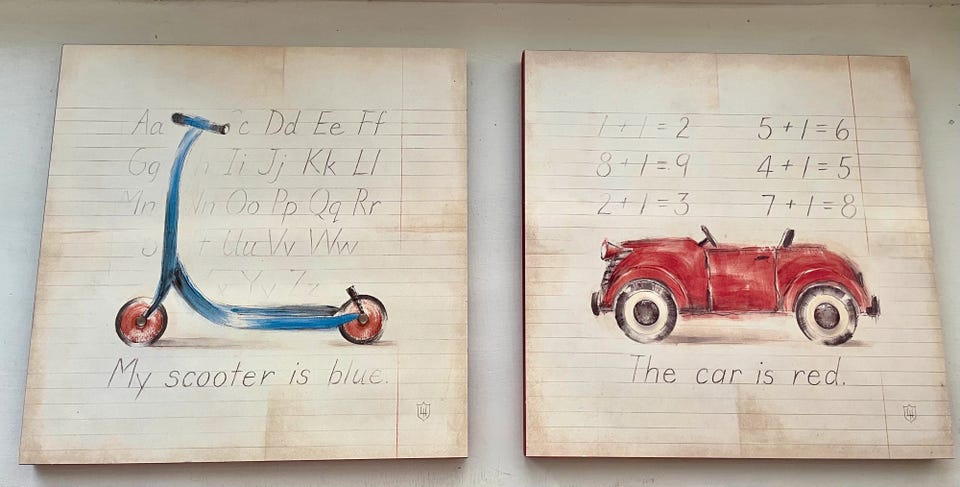 Aa c Dd Ee Ff
Gg h Ii Jj Kk Ll
Mm Nn Oo Pp Qq Rr
t Uu Vv Ww
x Yy Zz
My scooter is blue.
1 + 1 = 2 5 + 1 = 6
8 + 1 = 9 4 + 1 = 5
2 + 1 = 3 7 + 1 = 8
The car is red.